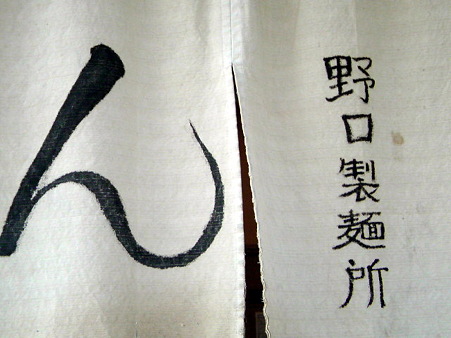 野口製麺所
ん